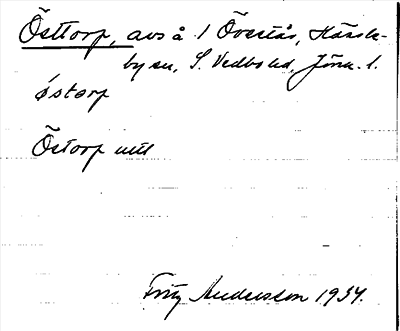 Östtorp, avs å 1 Överstås, Hässle-
by sn, S. Vedbo hd, Jönk. l.
östorp
Östorp utt
Fritz Andersson 1934.